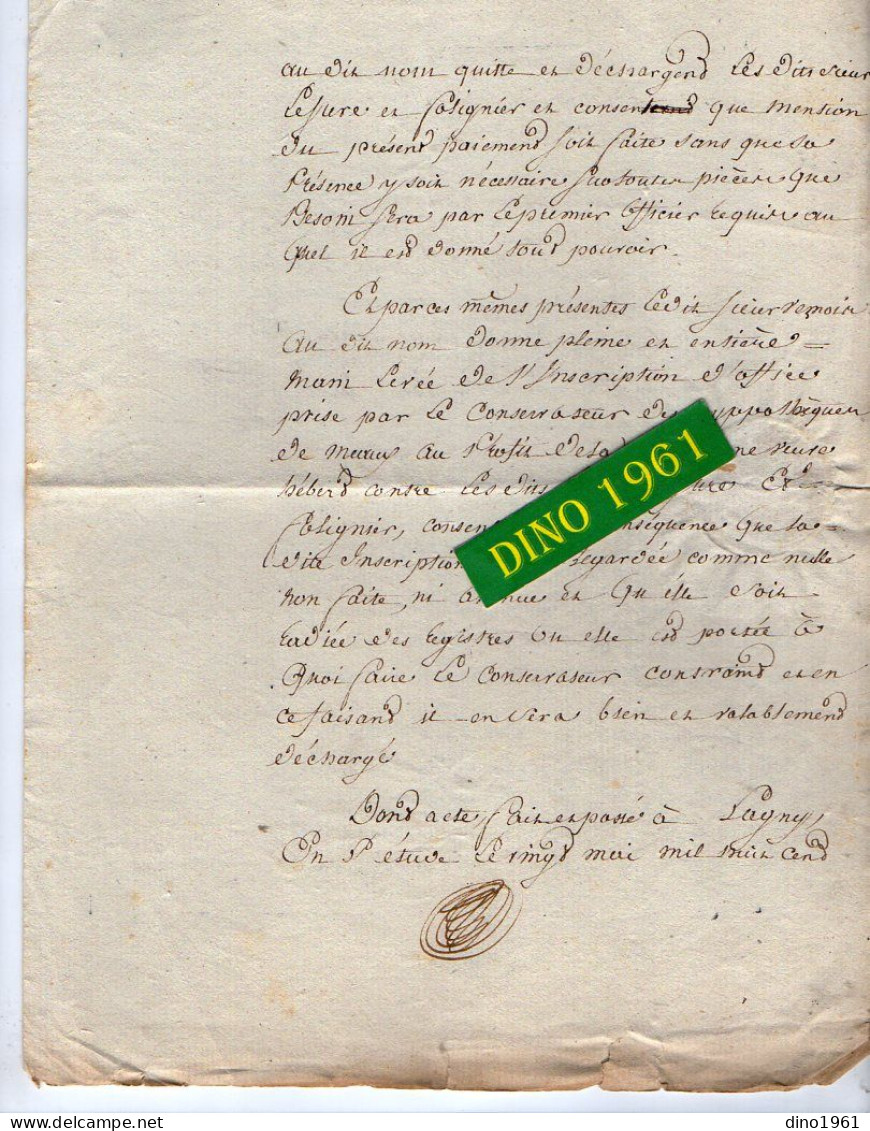 au dit nom quitte et déchargent les dits sieur
Lesure et Solignier et consentend que mention
du présent paiement soit faite sans que sa
Présence y soit nécessaire sur toutes pièces que
Besoin sera par le premier officier requis au
quel il est donné tout pouvoir.
Et par ces mêmes présentes ledit sieur
au dit nom donne pleine et entière
main levée de l'Inscription d'office
prise par le conservateur des hyppothèques
de au Profit de veuve
hébert contre les dits
Solignier, conséquence que la
dite Inscription regardée comme nulle
non faite, ni et qu'elle soit
radiée des registres ou elle est portée à
Quoi faire le conservateur contraint et en
ce faisant il en sera bien et valablement
déchargé
Dont acte fait et passé à Lagny,
En l'étude le vingt mai mil huit cent
DINO 1961
dino1961